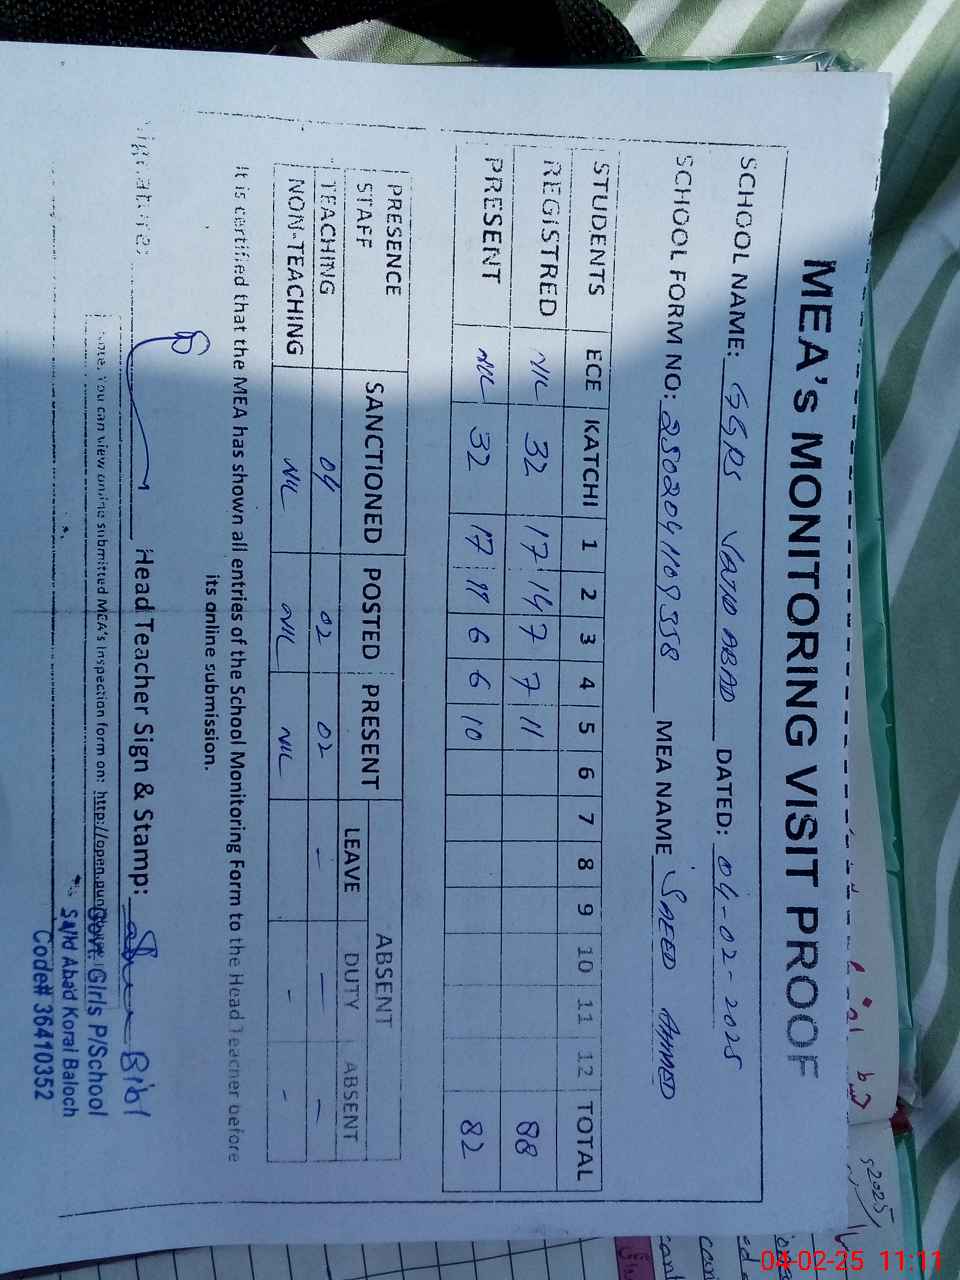 MEA's MONITORING VISIT PROOF
SCHOOL NAME: GGPS SAJID ABAD DATED: 04-02-2025
SCHOOL FORM NO: 2502041109358 MEA NAME SAEED AHMED
STUDENTS ECE KATCHI 1 2 3 4 5 6 7 8 9 10 11 12 TOTAL
REGISTRED NIL 32 17 14 7 7 11 88
PRESENT NIL 32 17 11 6 6 10 82
PRESENCE STAFF SANCTIONED POSTED PRESENT ABSENT
LEAVE DUTY ABSENT
TEACHING 04 02 02 - - -
NON-TEACHING NIL NIL NIL - -
It is certified that the MEA has shown all entries of the School Monitoring Form to the Head Teacher before
its online submission.
Signature: Head Teacher Sign & Stamp: Bibi
Note: You can view online submitted MEA's Inspection form on: http://open.pun
Govt. Girls P/School
Sajid Abad Koral Baloch
Code# 36410352
2025
04-02-25 11:11